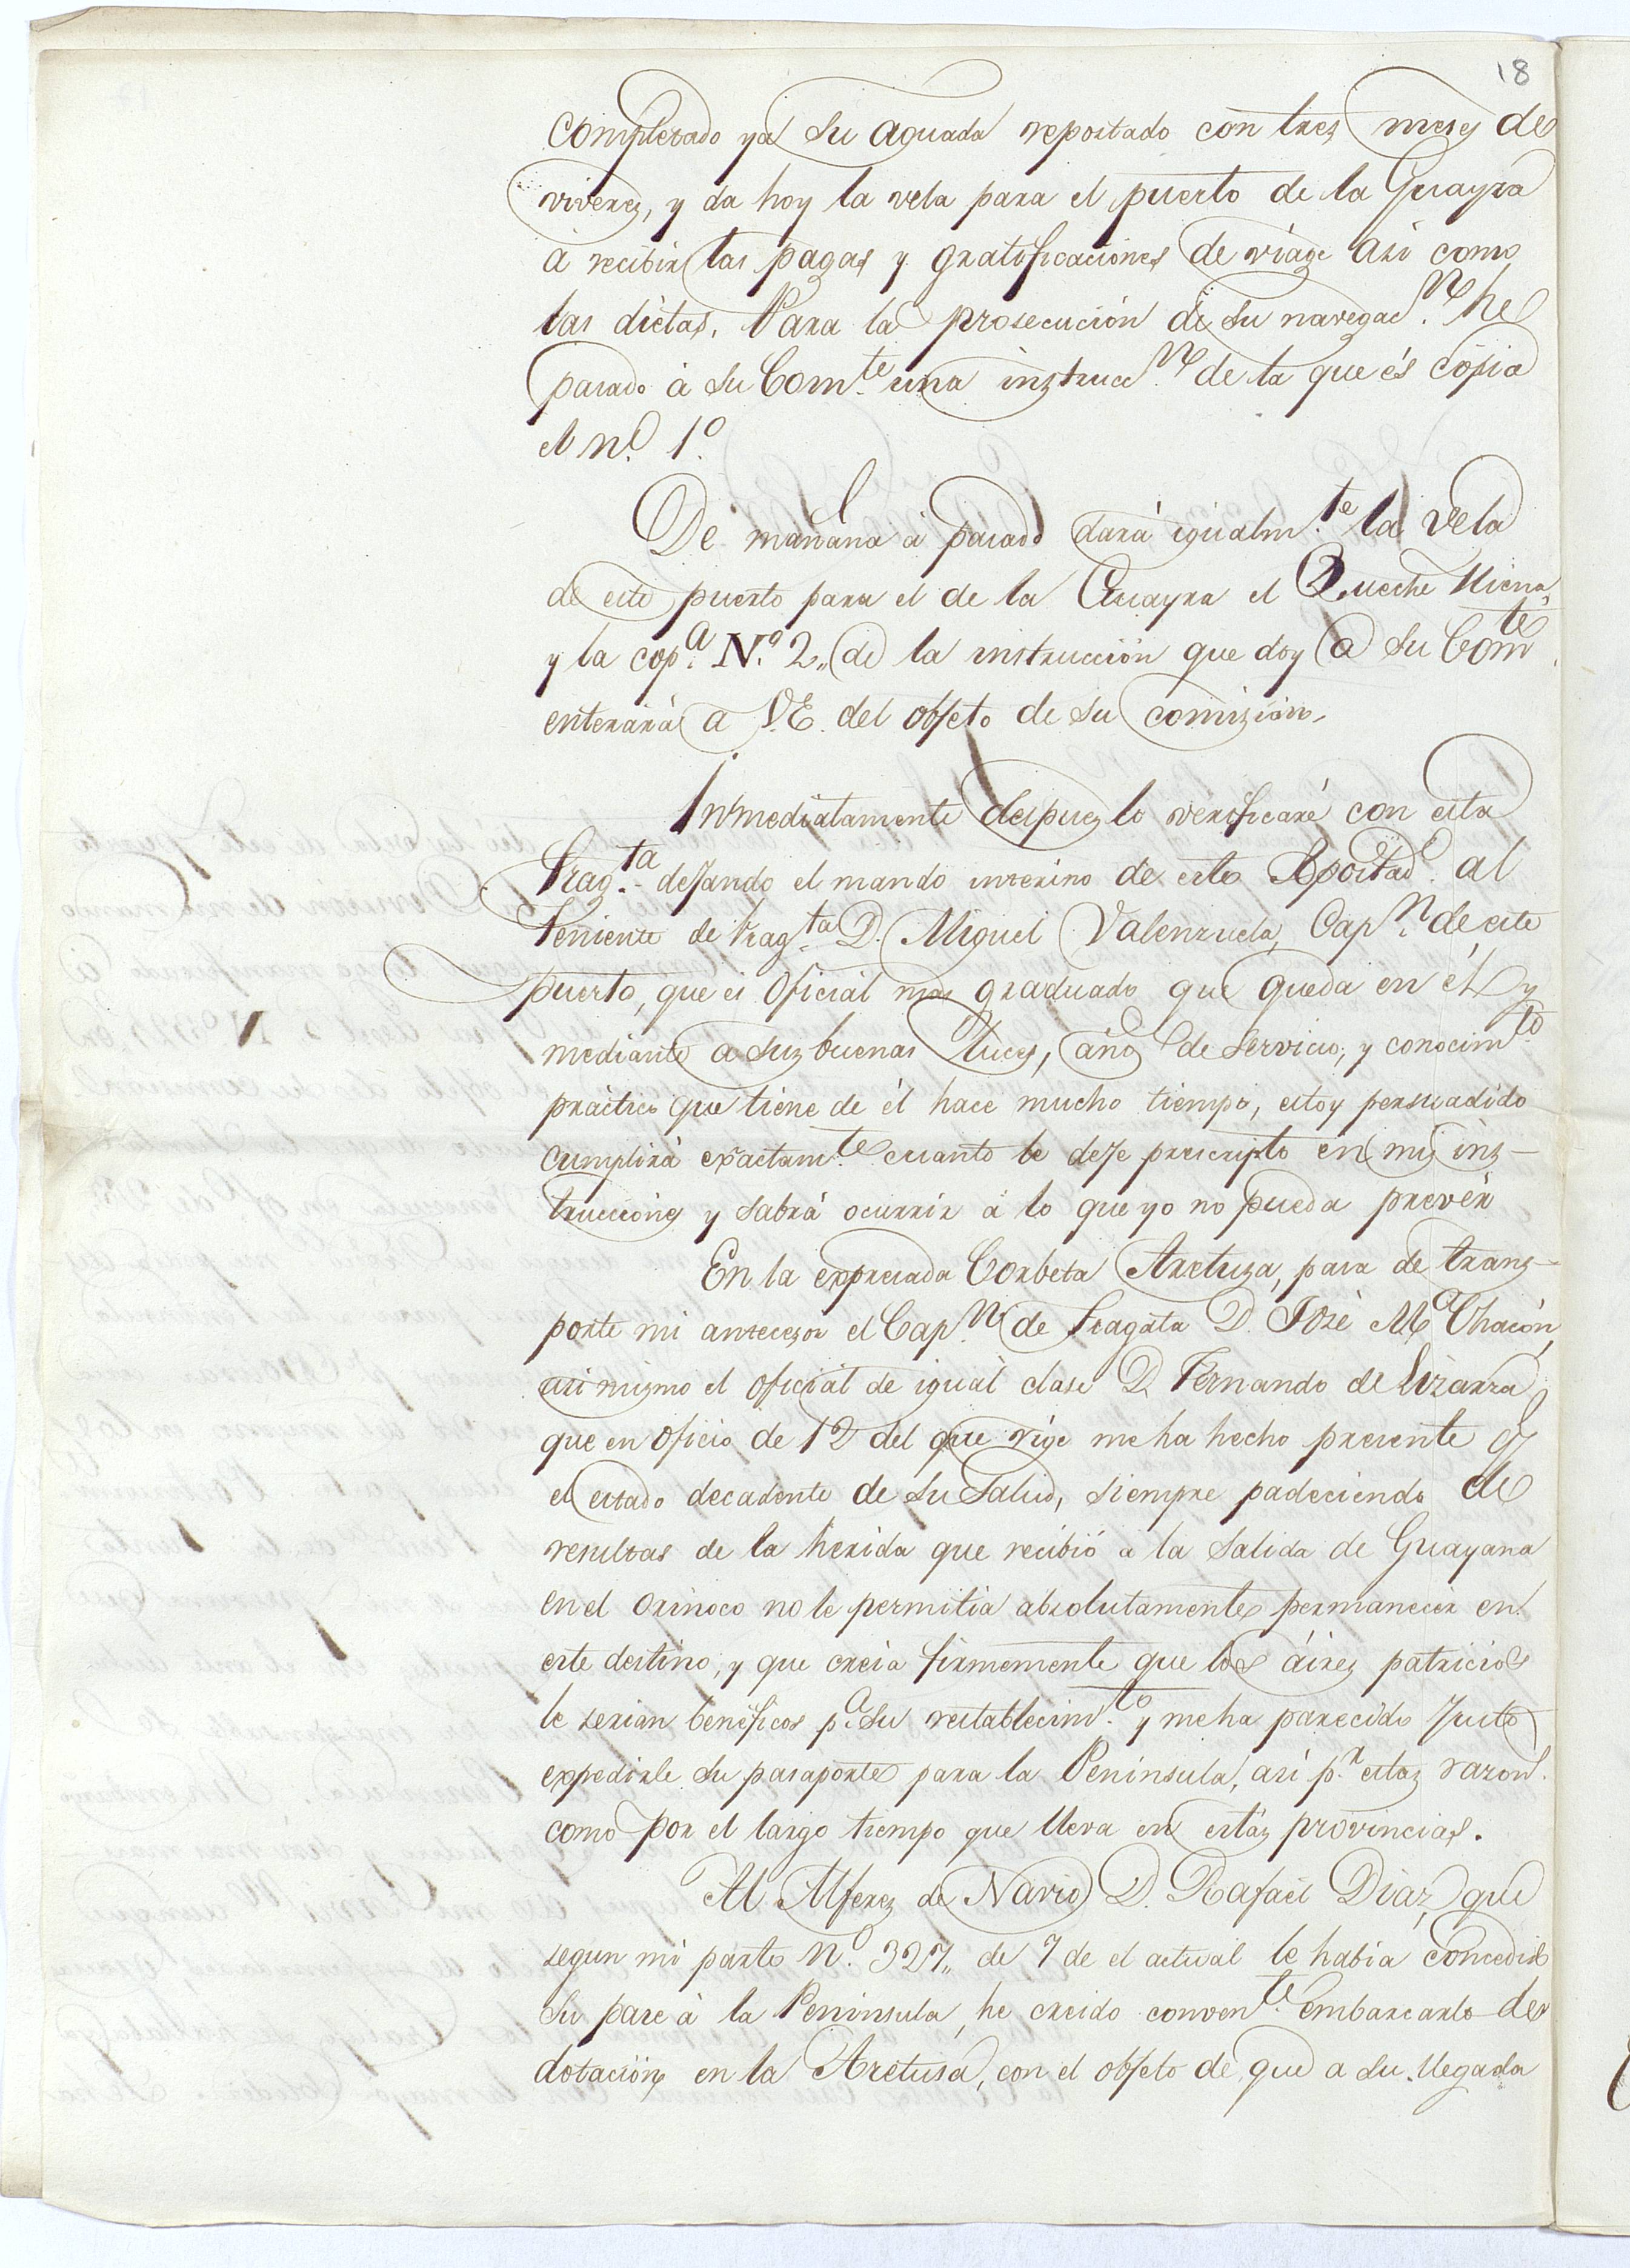 18
completado ya su aguada repostado con tres meses de
viveres, y da hoy la vela para el puerto de la Guayra
á recibir las pagas y gratificaciones de viage asi como
las dietas. Para la prosecución de su navegac.n he
pasado á su Com.te una instrucc.n de la que és cópia
el n.o 1.o
De mañana á pasado dará igualm.te la vela
de este puerto para el de la Guayra el Queche Hiena,
y la cop.a N.o 2,, de la instrucción que doy a su Com.te
enterará a V.E. del objeto de su comizión.
Inmediatamente despues lo verificaré con esta
Frag.ta dejando el mando interino de este Apostad.o al
Teniente de Frag.ta D. Miguel Valenzuela, Cap.n de este
puerto, que es Oficial mas graduado que queda en él y
mediante a sus buenas luces, años de servicio, y conocim.to
práctico que tiene de él hace mucho tiempo, estoy persuadido
cumplirá exactam.te cuanto le deje prescripto en mis ins-
trucciones y sabrá ocurrir á lo que yo no pueda prevér
En la expresada Corbeta Aretuza, pasa de trans-
porte mi antecesor el Cap.n de Fragata D. José M.a Chacón,
asi mismo el oficial de igual clase D. Fernando de Lizarza
que en oficio de 12 del que rige me ha hecho presente q.e
el estado decadente de su salud, siempre padeciendo de
resultas de la herida que recibió á la salida de Guayana
en el Orinoco no le permitia absolutamente permanecer en
este destino, y que creia firmemente que los áires patricios
le serian benéficos p.a su restablecim.to y me ha parecido justo
expedirle su pasaporte para la Peninsula, asi p.r estas razon.s
como por el largo tiempo que lleva en estas provincias.
Al Alferez de Navio D. Rafael Diaz, que
segun mi parte N.o 327,, de 7 de el actual le habia concedido
su pase á la Peninsula, he creido conven.te embarcarlo de
dotación en la Aretusa, con el objeto de que a su llegada